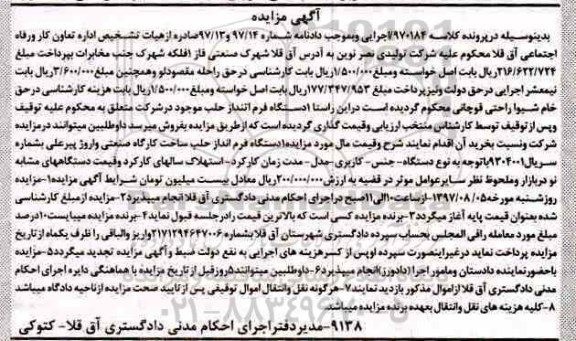 آگهی مزایده
بدینوسیله درپرونده کلاسه ۹۷۰۱۸۴/اجرایی وبموجب دادنامه شماره ۹۷/۱۴ و۹۷/۱۳صادره ازهیات تشخیص اداره تعاون کار ورفاه
اجتماعی آق قلا محکوم علیه شرکت تولیدی نصر نوین به آدرس آق قلا شهرک صنعتی فاز ۱فلکه شهرک جنب مخابرات بپرداخت مبلغ
۲۱۶/۶۲۲/۷۲۴ریال بابت اصل خواسته ومبلغ۱/۵۰۰/۰۰۰ریال بابت کارشناسی درحق راحله مقصودلو وهمچنین مبلغ۳/۶۰۰/۰۰۰ریال بابت
نیمعشر اجرایی درحق دولت ونیزپرداخت مبلغ ۱۷۷/۳۴۷/۹۵۳ریال بابت اصل خواسته ومبلغ۱/۵۰۰/۰۰۰ریال بابت هزینه کارشناسی درحق
خام شیوا راحتی قوچانی محکوم گردیده است دراین راستا ۱دستگاه فرم اتنداژ حلب موجود درشرکت متعلق به محکوم علیه توقیف
وپس ازتوقیف توسط کارشناس منتخب ارزیابی وقیمت گذاری گردیده است که ازطریق مزایده بفروش میرسد داوطلبین میتوانند درمزایده
شرکت ونسبت بخرید آن اقدام نمایند شرح وقیمت مال مورد مزایده۱دستگاه فرم اتنداژ حلب ساخت کارگاه صنعتی واروژ پیرعلی بشماره
سریال۹۳۰۴۰۰۱باتوجه به نوع دستگاه- جنس- کاربری-مدل- مدت زمان کارکرد- استهلاک سالهای کارکرد وقیمت دستگاههای مشابه
نو دربازار وملحوظ نظر سایرعوامل موثر در قضیه به ارزش۲۰۰/۰۰۰/۰۰۰ریال معادل بیست میلیون تومان شرایط آگهی مزایده۱-مزایده
روزشنبه مورخه۱۳۹۷/۰۸/۰۵-ازساعت۱۰الی۱۱صبح دراجرای احکام مدنی دادگستری آق قلاانجام میپذیرد۲-مزایده ازمبلغ کارشناسی
شده بعنوان قیمت پایه آغاز میگردد۳-برنده مزایده کسی است که بالاترین قیمت رادرجلسه قبول نماید۴-برنده مزایده میبایست۱۰درصد
مبلغ مورد معامله رافی المجلس بحساب سپرده دادگستری شهرستان آق قلابشماره۲۱۷۱۲۹۴۶۴۷۰۰۶واریز والباقی را ظرف یکماه ازتاریخ
مزایده پرداخت نماید درغیراینصورت سپرده اوپس از کسرهزینه های اجرایی به نفع دولت ضبط وآگهی مزایده تجدید میگردد۵-مزایده
باحضورنماینده دادستان ومامور اجرا (دادورز)انجام میپذیرد۶-داوطلبین میتوانند۵روزقبل ازتاریخ مزایده با هماهنگی دایره اجرای احکام
مدنی دادگستری آق قلا ازاموال مذکور بازدید نمایند۷-هرگونه نقل وانتقال اموال توقیفی پس ازتایید صحت مزایده ازناحیه دادگاه میباشد
۸-کلیه هزینه های نقل وانتقال بعهده برنده مزایده میباشد.
۹۱۳۸-مدیردفتراجرای احکام مدنی دادگستری آق قلا- کتوکی